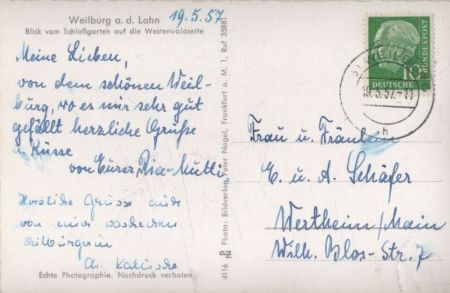 Weilburg a. d. Lahn
Blick vom Schloßgarten auf die Westerwaldseite
19.5.57
Meine Lieben,
von dem schönen Weil-
burg, wo es mir sehr gut
gefällt herzliche Grüße
u Küsse
von Eurer Ria-Mutti
Herzliche Grüsse auch
von mir
Echte Photographie. Nachdruck verboten
4116 Photo: Bildverlag Peter Nagel, Frankfurt a. M. 1, Ruf 35881
10
DEUTSCHE
BUNDESPOST
Frau u. Fräulein
E. u. A. Schäfer
Wertheim/Main
Wilh. Blos-Str. 7